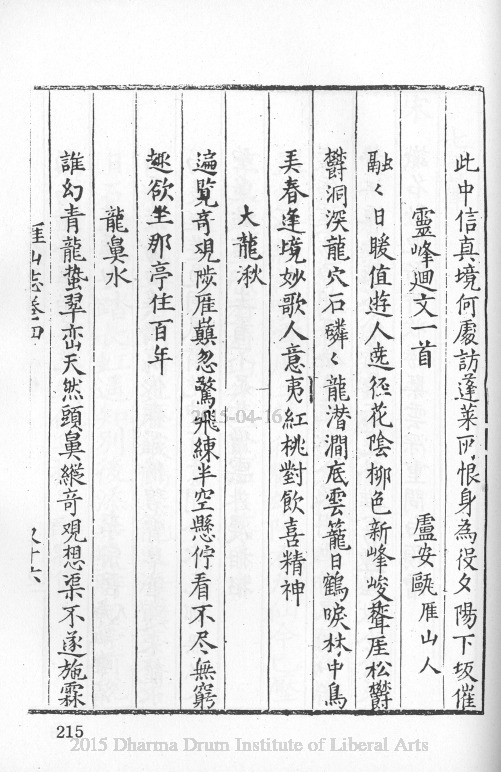 此中信真境何處訪蓬萊所恨身為役夕陽下坂催
靈峰廻文一首
盧安甌雁山人
融々日暖值遊人遶徑花陰柳色新峰峻聳厓松欝
欝洞深龍穴石磷々龍潛澗底雲籠日鶴唳林中鳥
弄春逢境妙歌人意夷紅桃對飲喜精神
大龍湫
遍覧奇观陟厓巔忽驚飛練半空懸佇看不尽無窮
趣欲坐那亭住百年
龍鼻水
誰幻青龍蟄翠峦天然頭鼻縱奇观想渠不遂施霖
山志卷四
又十六
215
2015-04-16
2015 Dharma Drum Institute of Liberal Arts